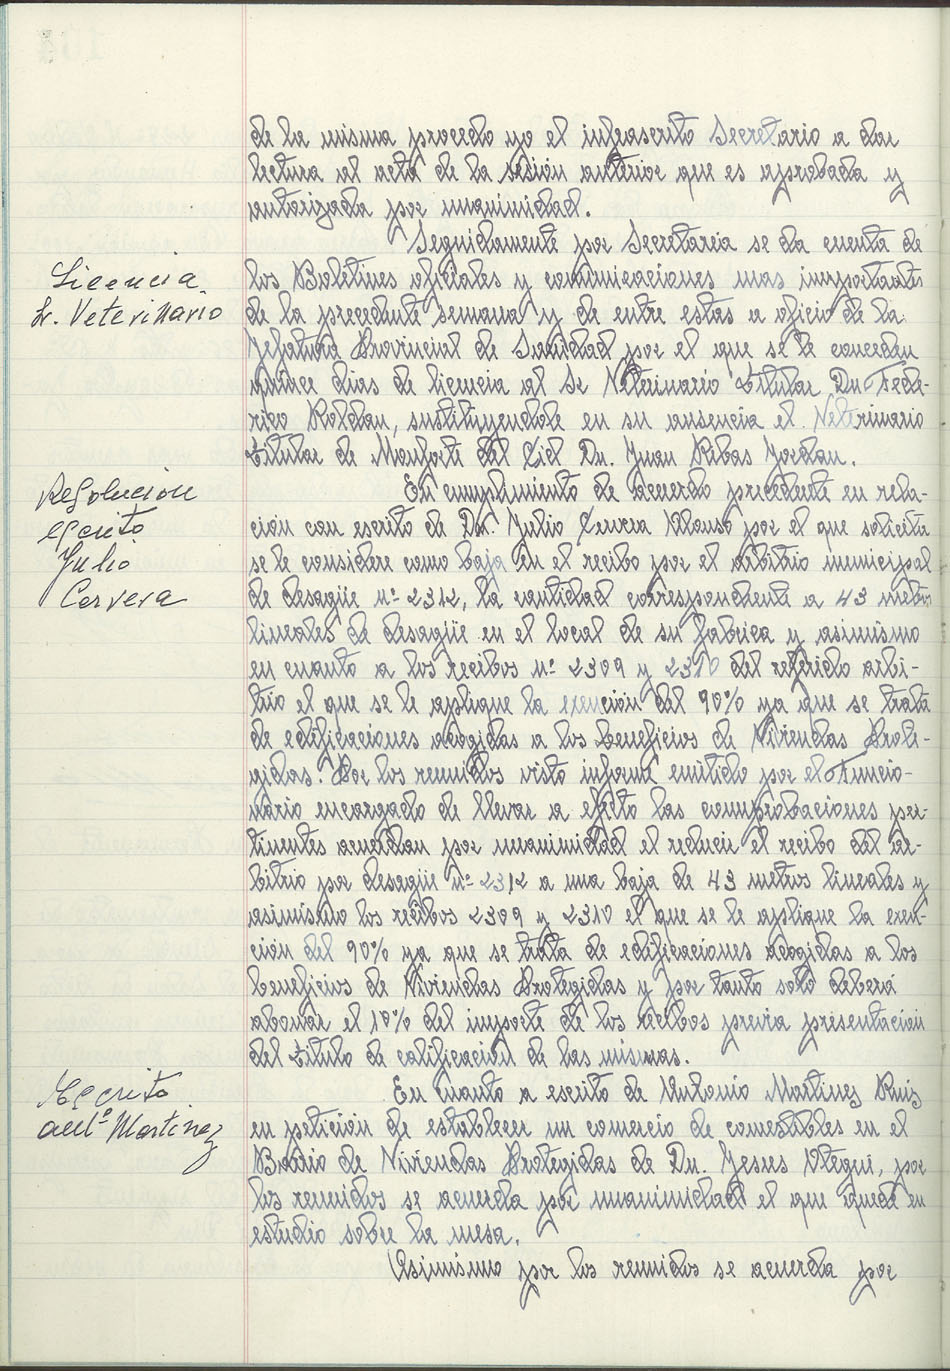 de la misma procedo yo el infrascrito Secretario a dar
lectura al acta de la sesión anterior que es aprobada y
autorizada por unanimidad.
Seguidamente por Secretaria se da cuenta de
Licencia
los Boletines oficiales y comunicaciones mas importantes
Sr. Veterinario
de la precedente semana y de entre estas a oficio de la
Jefatura Provincial de Sanidad por el que se le conceden
quince dias de licencia al Sr Veterinario titular Dn Fede-
rico Roldan, sustituyendole en su ausencia el Veterinario
titular de Monforte del Cid Dn. Juan Ribas Jordan.
Resolucion
En cumplimiento de acuerdo precedente en rela-
escrito
ción con escrito de Dn. Julio Cervera Alonso por el que solicita
Julio
se le considere como baja en el recibo por el arbitrio municipal
Cervera
de desagüe nº 2312, la cantidad correspondiente a 43 metros
lineales de desagüe en el local de su fabrica y asimismo
en cuanto a los recibos nº 2309 y 2310 del referido arbi-
trio el que se le aplique la exencion del 90% ya que se trata
de edificaciones acogidas a los beneficios de Viviendas Prote-
gidas. Por los reunidos visto informe emitido por el Funcio-
nario encargado de llevar a efecto las comprobaciones per-
tinentes acuerdan por unanimidad el reducir el recibo del ar-
bitrio por desagüe nº 2312 a una baja de 43 metros lineales y
asimismo los recibos 2309 y 2310 el que se le aplique la exen-
ción del 90% ya que se trata de edificaciones acogidas a los
beneficios de Viviendas Protegidas y por tanto solo deberá
abonar el 10% del importe de los recibos previa presentación
del titulo de calificación de las mismas.
Escrito
En cuanto a escrito de Antonio Martinez Ruiz
antº Martinez
en petición de establecer un comercio de comestibles en el
Barrio de Viviendas Protegidas de Dn. Jesus Otegui, por
los reunidos se acuerda por unanimidad el que quede en
estudio sobre la mesa.
Asimismo por los reunidos se acuerda por